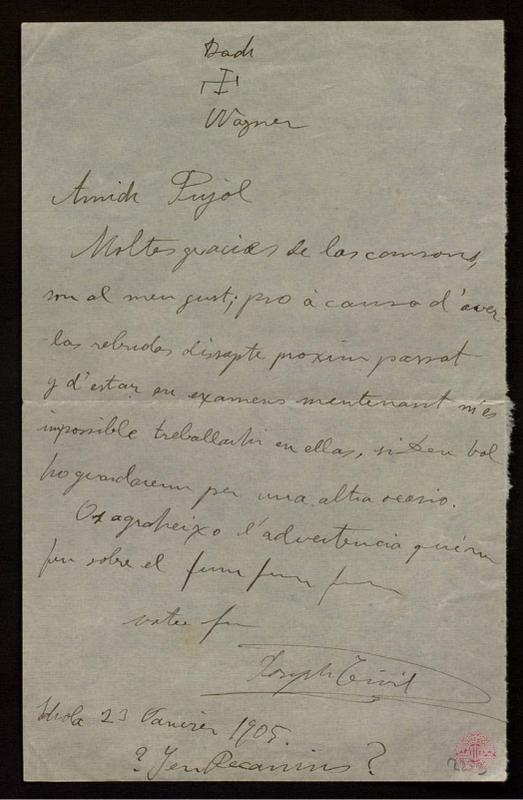 Bach
I
Wagner
Amich Pujol
Moltes gracies de las cansons,
son al meu gust; pro à causa d'aver-
-las rebudas dissapte proxim passat
y d'estar en examens mentenant m'es
impossible treballarhi en ellas, si Deu vol
ho guardarem per una altra ocasio.
Os agraheixo l'advertencia que'm
feu sobre el fum fum fum
vostre
Joseph Civil
23 Janvier 1905.
? ?